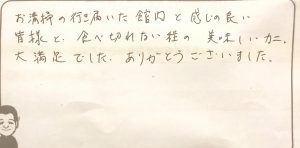 お清掃の行き届いた館内と感じの良い
皆様と、食べ切れない程の美味しいカニ。
大満足でした。ありがとうございました。